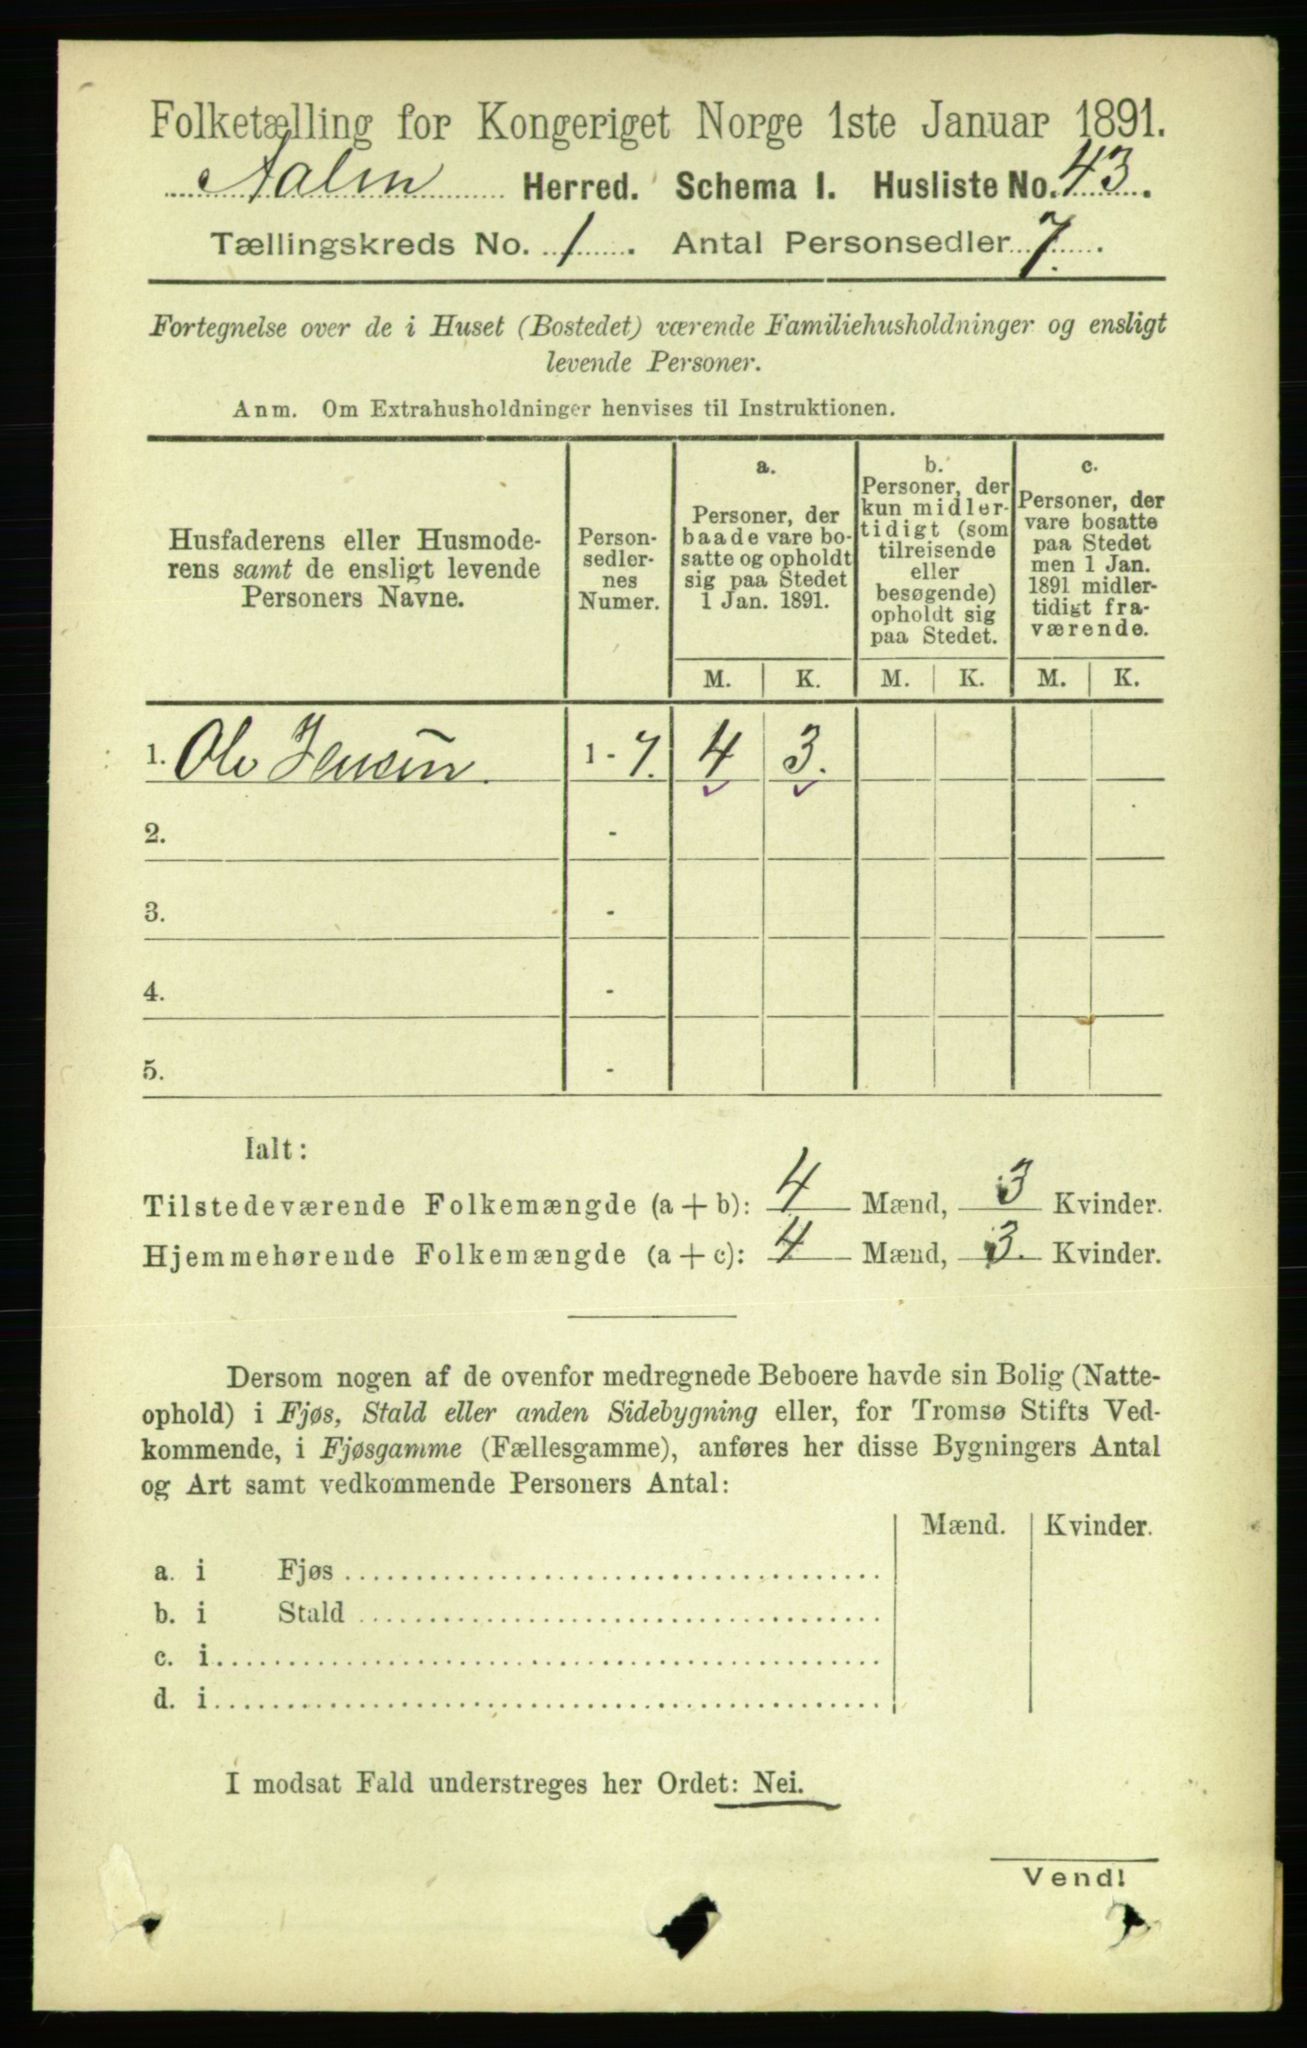 Folketælling for Kongeriget Norge 1ste Januar 1891.
Aalen Herred. Schema 1. Husliste No. 43.
Tællingskreds No. 1. Antal Personsedler 7.
Fortegnelse over de i Huset (Bostedet) værende Familiehusholdninger og ensligt
levende Personer.
Anm. Om Extrahusholdninger henvises til Instruktionen.
Husfaderens eller Husmode-
rens samt de ensligt levende
Personers Navne.
Person-
sedler-
nes
Numer.
a.
Personer, der
baade vare bo-
satte og opholdt
sig paa Stedet
1 Jan. 1891.
b.
Personer, der
kun midler-
tidigt (som
tilreisende
eller
besøgende)
opholdt sig
paa Stedet.
c.
Personer, der
vare bosatte
paa Stedet
men 1 Jan.
1891 midler-
tidigt fra-
værende.
M. K. M. K. M. K.
1. Ole Jensen 1 - 7. 4 3.
2. -
3. -
4. -
5. -
Ialt:
Tilstedeværende Folkemængde (a + b): 4 Mænd, 3 Kvinder.
Hjemmehørende Folkemængde (a + c): 4 Mænd, 3. Kvinder.
Dersom nogen af de ovenfor medregnede Beboere havde sin Bolig (Natte-
ophold) i Fjøs, Stald eller anden Sidebygning eller, for Tromsø Stifts Ved-
kommende, i Fjøsgamme (Fællesgamme), anføres her disse Bygningers Antal
og Art samt vedkommende Personers Antal:
Mænd. Kvinder.
a. i Fjøs
b. i Stald
c. i
d. i
I modsat Fald understreges her Ordet: Nei.
Vend!